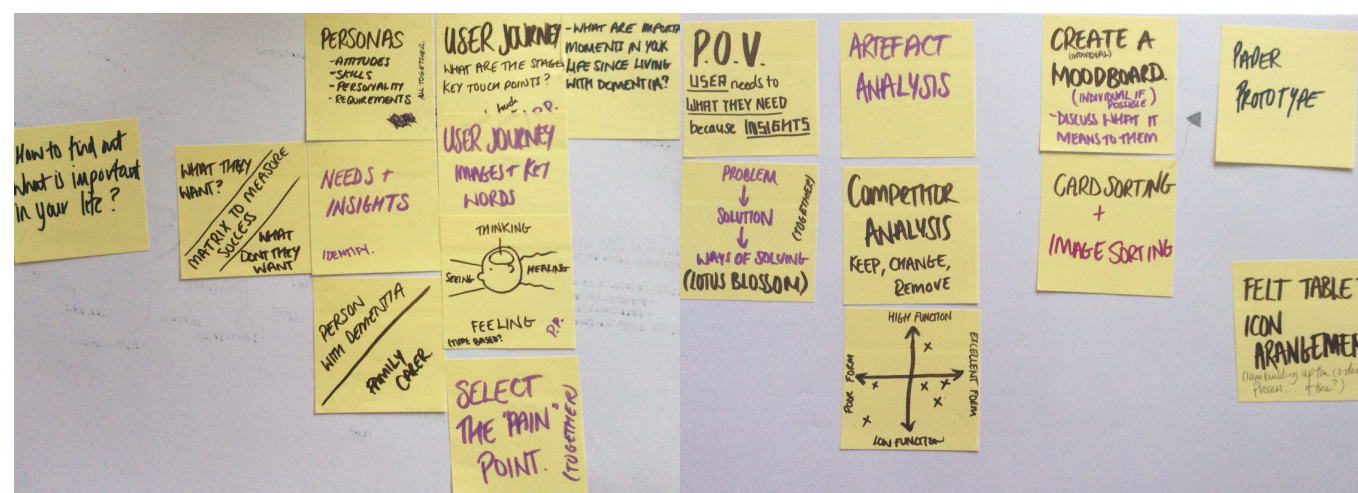 How to find out
what is important
in your life?
WHAT THEY
WANT?
MATRIX TO MEASURE
SUCCESS
WHAT
DONT THEY
WANT
PERSONAS
-ATTITUDES
-SKILLS
-PERSONALITY
-REQUIREMENTS
ALL TOGETHER
NEEDS +
INSIGHTS
IDENTIFY.
PERSON
WITH DEMENTIA
FAMILY
CARER
USER JOURNEY
WHAT ARE THE STAGES
KEY TOUCH POINTS?
P.P.
-WHAT ARE IMPORTA
MOMENTS IN YOUR
LIFE SINCE LIVING
WITH DEMENTIA?
USER JOURNEY
IMAGES + KEY
WORDS
THINKING
SEEING
HEARING
FEELING
(TIME BASED?
P.P.
SELECT
THE "PAIN"
POINT.
(TOGETHER)
P.O.V.
USER needs to
WHAT THEY NEED
because INSIGHTS
PROBLEM
SOLUTION
WAYS OF SOLVING
(LOTUS BLOSSOM)
(TOGETHER)
ARTEFACT
ANALYSIS
COMPETITOR
ANALYSIS
KEEP, CHANGE,
REMOVE
HIGH FUNCTION
POOR FORM
EXCELLENT FORM
LOW FUNCTION
CREATE A
(INDIVIDUAL)
MOODBOARD.
(INDIVIDUAL IF
POSSIBLE)
-DISCUSS WHAT IT
MEANS TO THEM
CARD SORTING
+
IMAGE SORTING
PAPER
PROTOTYPE
FELT TABLET
ICON
ARANGEMEN
(I am building up the co-des
process...